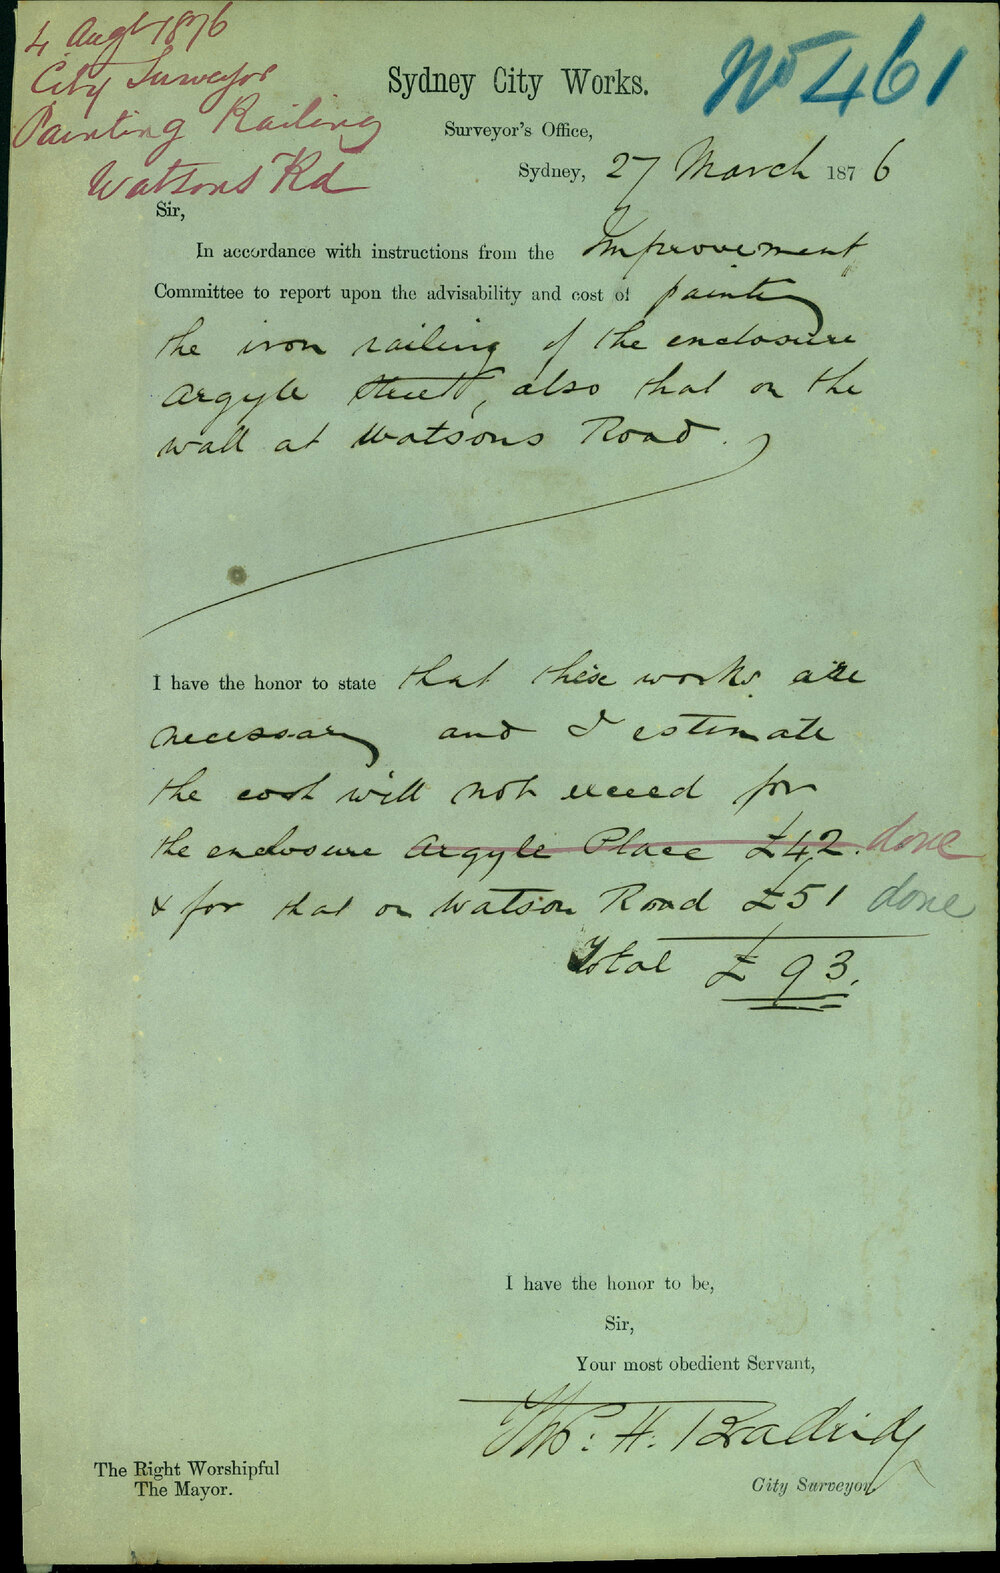 4 Augt 1876
City Surveyor
Painting Railing
Watsons Rd
No 461
Sydney City Works.
Surveyor's Office,
Sydney, 27 March 1876
Sir,
In accordance with instructions from the Improvement
Committee to report upon the advisability and cost of painting
the iron railing of the enclosure
Argyle Street, also that on the
wall at Watsons Road.
I have the honor to state that these works are
necessary and I estimate
the cost will not exceed for
the enclosure Argyle Place £42. done
& for that on Watson Road £51 done
Total £93.
I have the honor to be,
Sir,
Your most obedient Servant,
Thos. H. Bradridge
City Surveyor.
The Right Worshipful
The Mayor.